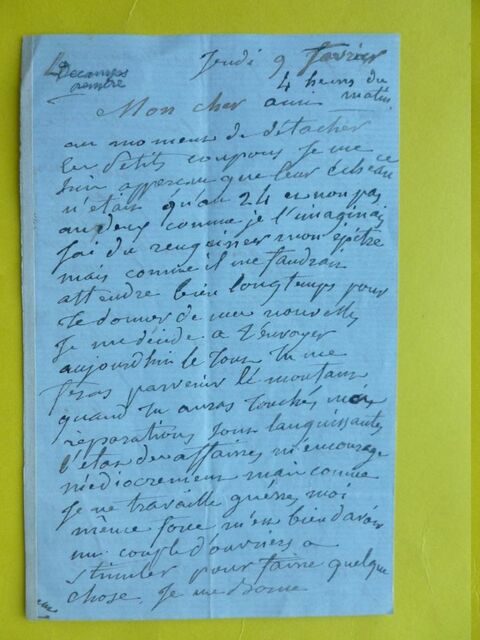 Decamps
peintre
Jeudi 9 février
4 heures du
matin.
Mon cher ami
au moment de détacher
les petits coupons je me
suis apperçu que leur échéance
n'était qu'au 24 et non pas
au deux comme je l'imaginais
j'ai du rengainer mon épitre
mais comme il me faudrait
attendre bien longtemps pour
te donner de mes nouvelles
je me décide a t'envoyer
aujourdhui le tout tu me
feras parvenir le montant
quand tu auras touché mes
réparations sont languissantes
l'état des affaires m'encourage
médiocrement mais comme
je ne travaille guères, moi
même force m'est bien d'avoir
un couple d'ouvriers a
stimuler pour faire quelque
chose. Je me donne